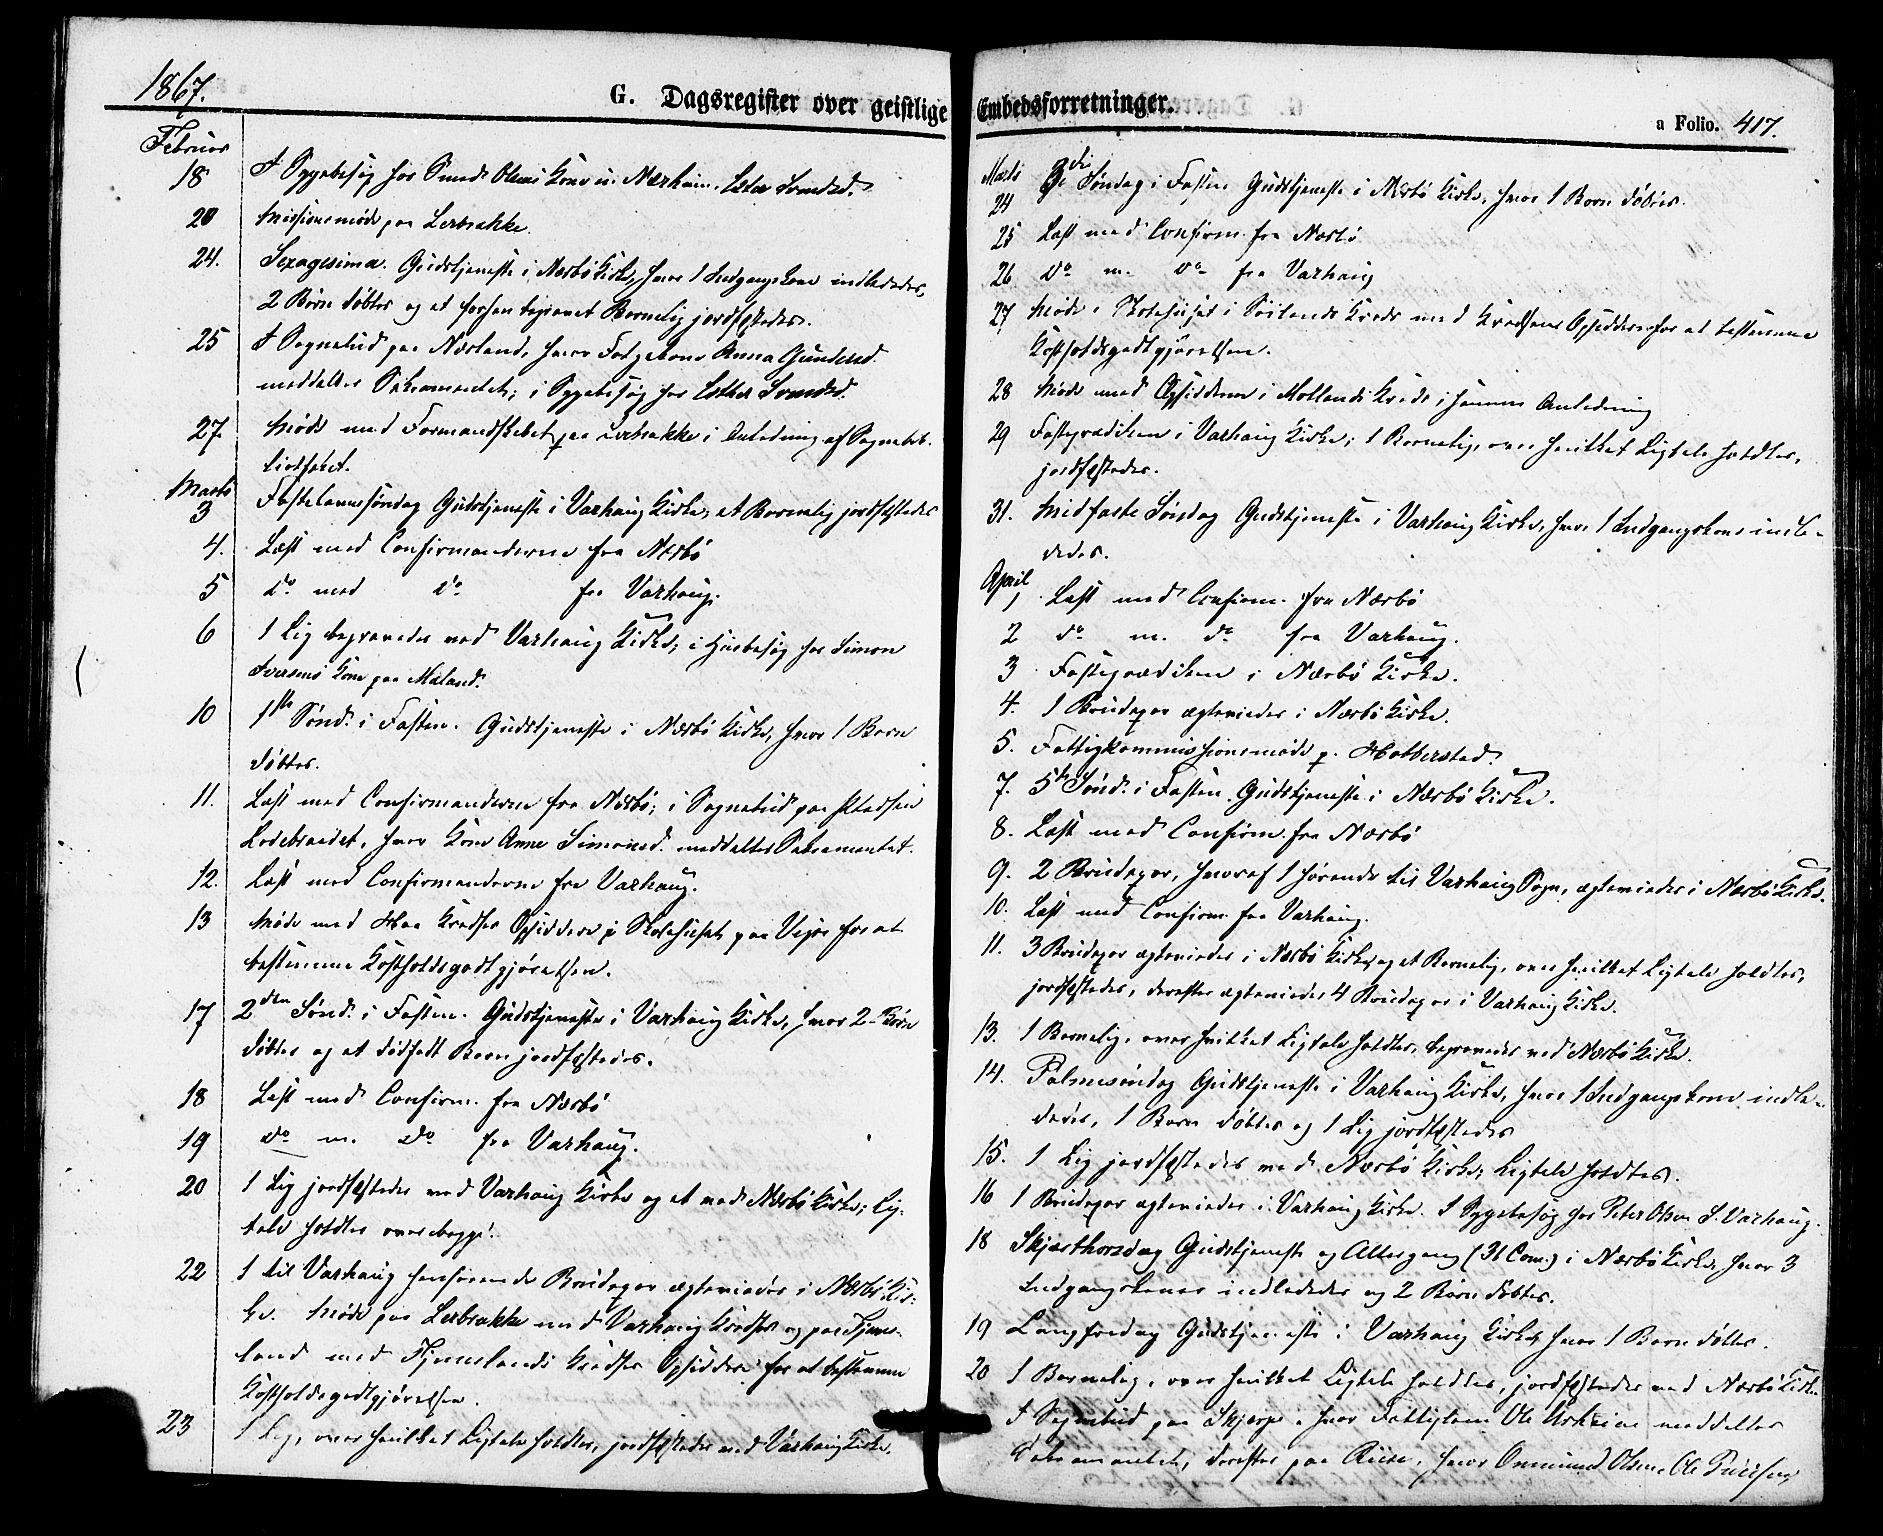 1867.
G. Dagsregister over geistlige
Februar
18 I Sygebesøg hos Smed Olsens Kone i Nærheim
20 Missionsmøde paa Lerbrække.
24. Sexagesima. Gudstjeneste i Nærbø Kirke, hvor 1 Indgangskone indlededes,
2 Børn døbtes og et forhen begravet Barnelig jordfæstedes.
25 I Sognebud paa Nærland, hvor Anna Gundersd.
meddeltes Sakramentet; i Sygebesøg hos Esther Svendsd.
27. Møde med Formandskabet paa Lerbrække i Anledning af Sognebib-
liotheket.
Marts
3 Fastelavnssøndag Gudstjeneste i Varhaug Kirke, et Barnelig jordfæstedes
4. Læst med Confirmanderne fra Nærbø
5 do med do fra Varhaug.
6 1 Lig begravedes ved Varhaug Kirke; i Husbesøg hos Simon
Iversens Kone paa Mæland.
10 1ste Sønd. i Fasten. Gudstjeneste i Nærbø Kirke, hvor 1 Barn
døbtes.
11. Læst med Confirmanderne fra Nærbø; i Sognebud paa Pladsen
hvor Kone Anne Simonsd. meddeltes Sakramentet.
12. Læst med Confirmanderne fra Varhaug.
13 Møde med Haa Kredses Opsiddere i Skolehuset paa for at
bestemme Kostholdsgodtgjørelsen.
17 2den Sønd. i Fasten. Gudstjeneste i Varhaug Kirke, hvor 2 Børn
døbtes og et dødfødt Barn jordfæstedes.
18 Læst med Confirm. fra Nærbø
19 do m. do fra Varhaug.
20 1 Lig jordfæstedes ved Varhaug Kirke og et ved Nærbø Kirke; Lig-
tale holdtes over begge.
22 1 til Varhaug henhørende Brudepar ægteviedes i Nærbø Kir-
ke. Møde paa Lerbrække med Varhaug Kredses og paa Tjems-
land med Tjemslands Kredses Opsiddere for at bestemme
Kostholdsgodtgjørelsen.
23 1 Lig, over hvilket Ligtale holdtes, jordfæstedes ved Varhaug Kirke.
Embedsforretninger.
a Folio. 417.
Marts
24 3die Søndag i Fasten Gudstjeneste i Nærbø Kirke, hvor 1 Barn døbtes.
25 Læst med Confirm. fra Nærbø
26 do m. do fra Varhaug
27 Møde i Skolehuset i Søilands Kreds med Kredsens Opsiddere for at bestemme
Kostholdsgodtgjørelsen.
28 Møde med Opsidderne i Motlands Kreds i samme Anledning
29 Fasteprædiken i Varhaug Kirke; 1 Barnelig, over hvilket Ligtale holdtes,
jordfæstedes.
31. Midfaste Søndag Gudstjeneste i Varhaug Kirke, hvor 1 Indgangskone indle-
dedes.
April
1 Læst med Confirm. fra Nærbø
2 do m. do fra Varhaug.
3 Fasteprædiken i Nærbø Kirke.
4. 1 Brudepar ægteviedes i Nærbø Kirke.
5. Fattigkommissionsmøde p. Hobberstad.
7. 5te Sønd. i Fasten Gudstjeneste i Nærbø Kirke.
8. Læst med Confirm. fra Nærbø
9. 2 Brudepar, hvoraf 1 hørende til Varhaug Sogn, ægteviedes i Nærbø Kirke.
10. Læst med Confirm. fra Varhaug.
11. 3 Brudepar ægteviedes i Nærbø Kirke og et Barnelig, over hvilket Ligtale holdtes,
jordfæstedes, derefter ægteviedes 4 Brudepar i Varhaug Kirke.
13. 1 Barnelig, over hvilket Ligtale holdtes, begravedes ved Nærbø Kirke.
14. Palmesøndag Gudstjeneste i Varhaug Kirke, hvor 1 Indgangskone indle-
dedes, 1 Barn døbtes og 1 Lig jordfæstedes
15. 1 Lig jordfæstedes ved Nærbø Kirke, Ligtale holdtes.
16 1 Brudepar ægteviedes i Varhaug Kirke. I Sygebesøg hos Peter Olsen S. Varhaug.
18 Skjærthorsdag Gudstjeneste og Altergang (31 Com.) i Nærbø Kirke, hvor 3
Indgangskoner indlededes og 2 Børn døbtes.
19 Langfredag Gudstjeneste i Varhaug Kirke, hvor 1 Barn døbtes.
20 1 Barnelig, over hvilket Ligtale holdtes, jordfæstedes ved Nærbø Kirke.
I Sognebud paa Skjærpe, hvor Fattiglem Ole meddeltes
Sakramentet, derefter paa hvor Ommund Olsen, Ole